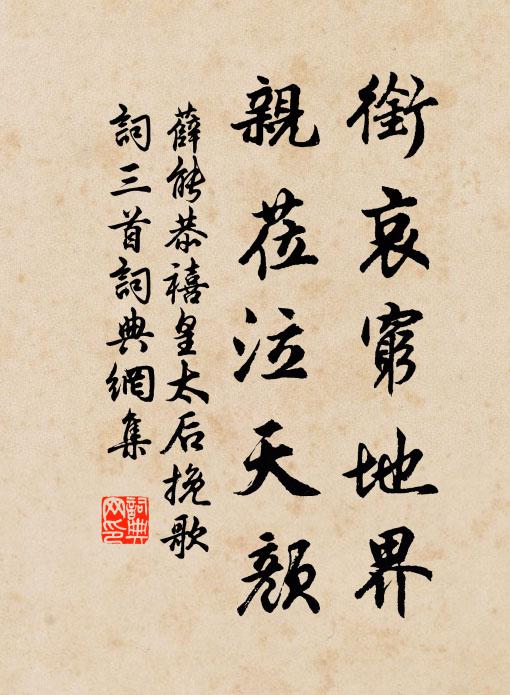 銜哀窮地界
親莅泣天顏
薛能恭禧皇太后挽歌
詞三首詞典網集
詞典
网印